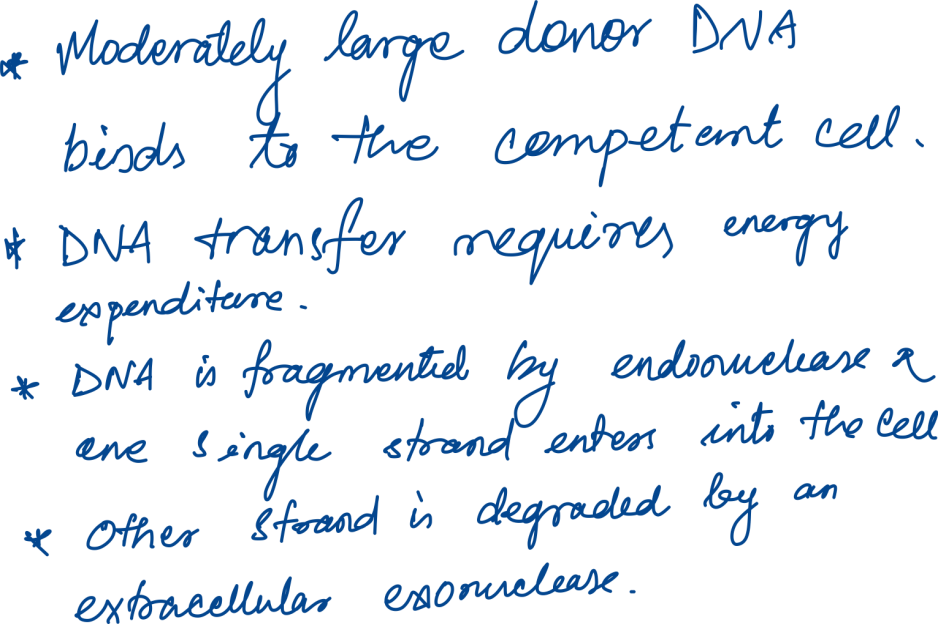 * Moderately large donor DNA
binds to the competent cell.
* DNA transfer requires energy
expenditure.
* DNA is fragmented by endonuclease &
one single strand enters into the cell
* Other strand is degraded by an
extracellular exonuclease.